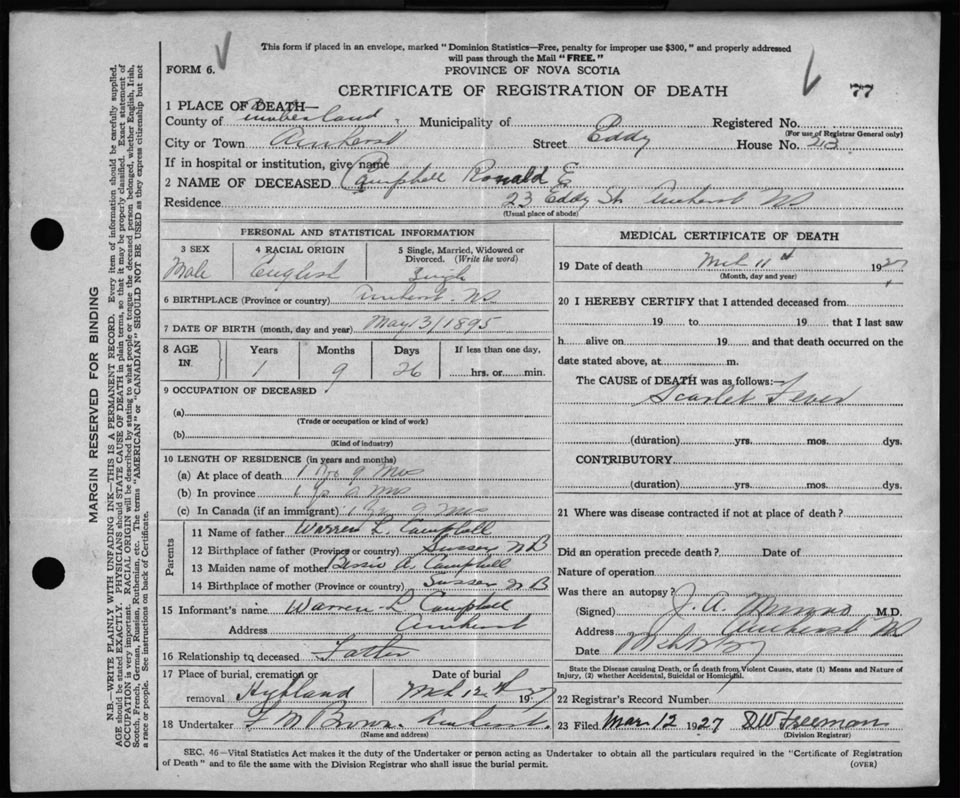 This form if placed in an envelope, marked "Dominion Statistics—Free, penalty for improper use $300," and properly addressed
will pass through the Mail "FREE."
FORM 6.
PROVINCE OF NOVA SCOTIA
CERTIFICATE OF REGISTRATION OF DEATH
77
1 PLACE OF DEATH—
County of Cumberland, Municipality of Registered No.
(For use of Registrar General only)
City or Town Amherst Street Eddy House No. 23
If in hospital or institution, give name
2 NAME OF DECEASED Campbell Ronald E
Residence 23 Eddy St. Amherst NS
(Usual place of abode)
PERSONAL AND STATISTICAL INFORMATION
3 SEX 4 RACIAL ORIGIN 5 Single, Married, Widowed or Divorced. (Write the word)
Male English Single
6 BIRTHPLACE (Province or country) Amherst - NS
7 DATE OF BIRTH (month, day and year) May 13/1895
8 AGE IN. Years Months Days If less than one day,
1 9 26 hrs. or min.
9 OCCUPATION OF DECEASED
(a)
(Trade or occupation or kind of work)
(b)
(Kind of industry)
10 LENGTH OF RESIDENCE (in years and months)
(a) At place of death 1 Yr 9 Mos
(b) In province 1 Yr 9 Mos
(c) In Canada (if an immigrant) 1 Yr 9 Mos
Parents
11 Name of father Warren L. Campbell
12 Birthplace of father (Province or country) Sussex NB
13 Maiden name of mother Bessie A. Campbell
14 Birthplace of mother (Province or country) Sussex NB
15 Informant's name Warren L Campbell
Address Amherst
16 Relationship to deceased Father
17 Place of burial, cremation or removal Date of burial
Highland Mch 12th 1927
18 Undertaker F M Brown - Amherst.
(Name and address)
MEDICAL CERTIFICATE OF DEATH
19 Date of death Mch 11th 1927
(Month, day and year)
20 I HEREBY CERTIFY that I attended deceased from
19 to 19 that I last saw
h alive on 19 and that death occurred on the
date stated above, at m.
The CAUSE of DEATH was as follows:
Scarlet Fever
(duration) yrs. mos. dys.
CONTRIBUTORY
(duration) yrs. mos. dys.
21 Where was disease contracted if not at place of death?
Did an operation precede death? Date of
Nature of operation
Was there an autopsy?
(Signed) J. A. Munro M.D.
Address Amherst NS
Date
State the Disease causing Death, or in death from Violent Causes, state (1) Means and Nature of
Injury, (2) whether Accidental, Suicidal or Homicidal.
22 Registrar's Record Number
23 Filed Mar 12 1927 D W Freeman
(Division Registrar)
SEC. 46—Vital Statistics Act makes it the duty of the Undertaker or person acting as Undertaker to obtain all the particulars required in the "Certificate of Registration
of Death" and to file the same with the Division Registrar who shall issue the burial permit. (OVER)
MARGIN RESERVED FOR BINDING
N.B.—WRITE PLAINLY WITH UNFADING INK—THIS IS A PERMANENT RECORD. Every item of information should be carefully supplied.
AGE should be stated EXACTLY. PHYSICIANS should STATE CAUSE OF DEATH in plain terms, so that it may be properly classified. Exact statement of
OCCUPATION is very important. RACIAL ORIGIN will be described by stating to what people or tongue the deceased person belonged, whether English, Irish,
Scotch, French, German, Russian, Ruthenian, etc. The terms "AMERICAN" or "CANADIAN" SHOULD NOT BE USED as they express citizenship but not
a race or people. See instructions on back of Certificate.